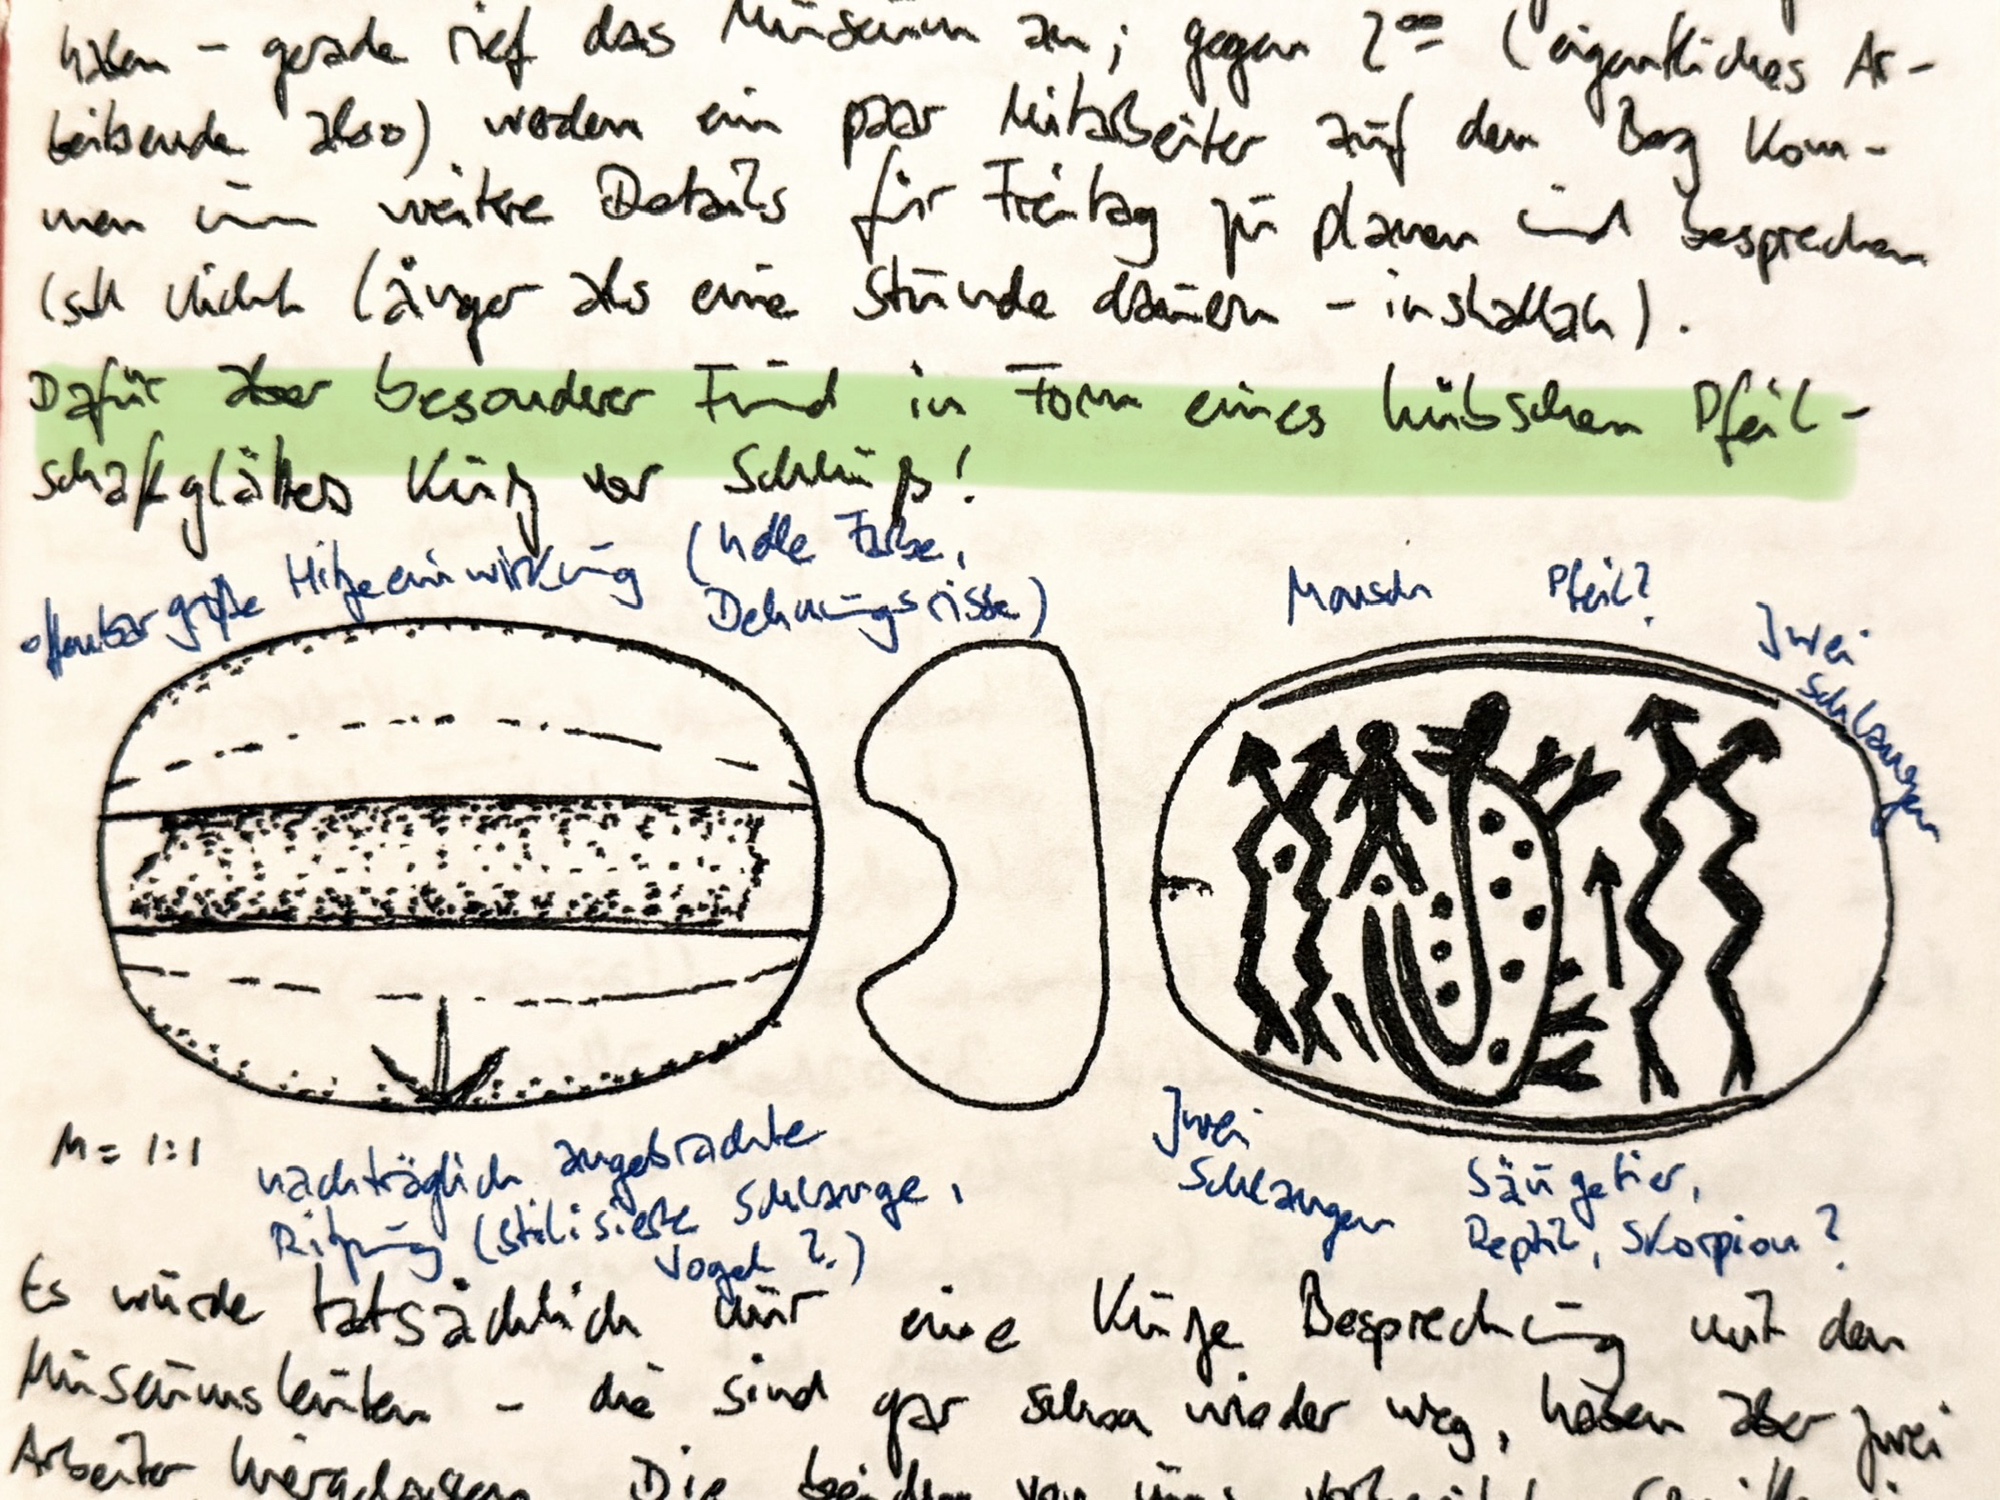 haben – gerade rief das Museum an; gegen 2°° (eigentliches Ar-
beitsende also) werden ein paar Mitarbeiter auf den Berg kom-
men um weitere Details für Freitag zu planen und besprechen
(soll nicht länger als eine Stunde dauern – inshallah).
Dafür aber besonderer Fund in Form eines hübschen Pfeil-
schaftglätters kurz vor Schluß!
offenbar große Hitzeeinwirkung (helle Farbe,
Dehnungsrisse)
Mensch
Pfeil?
Zwei
Schlangen
M = 1:1
nachträglich angebrachte
Ritzung (stilisierte Schlange,
Vogel?)
Zwei
Schlangen
Säugetier,
Reptil, Skorpion?
Es wurde tatsächlich nur eine kurze Besprechung mit den
Museumsleuten – die sind gar schon wieder weg, haben aber zwei
Arbeiter hiergelassen. Die beiden von uns